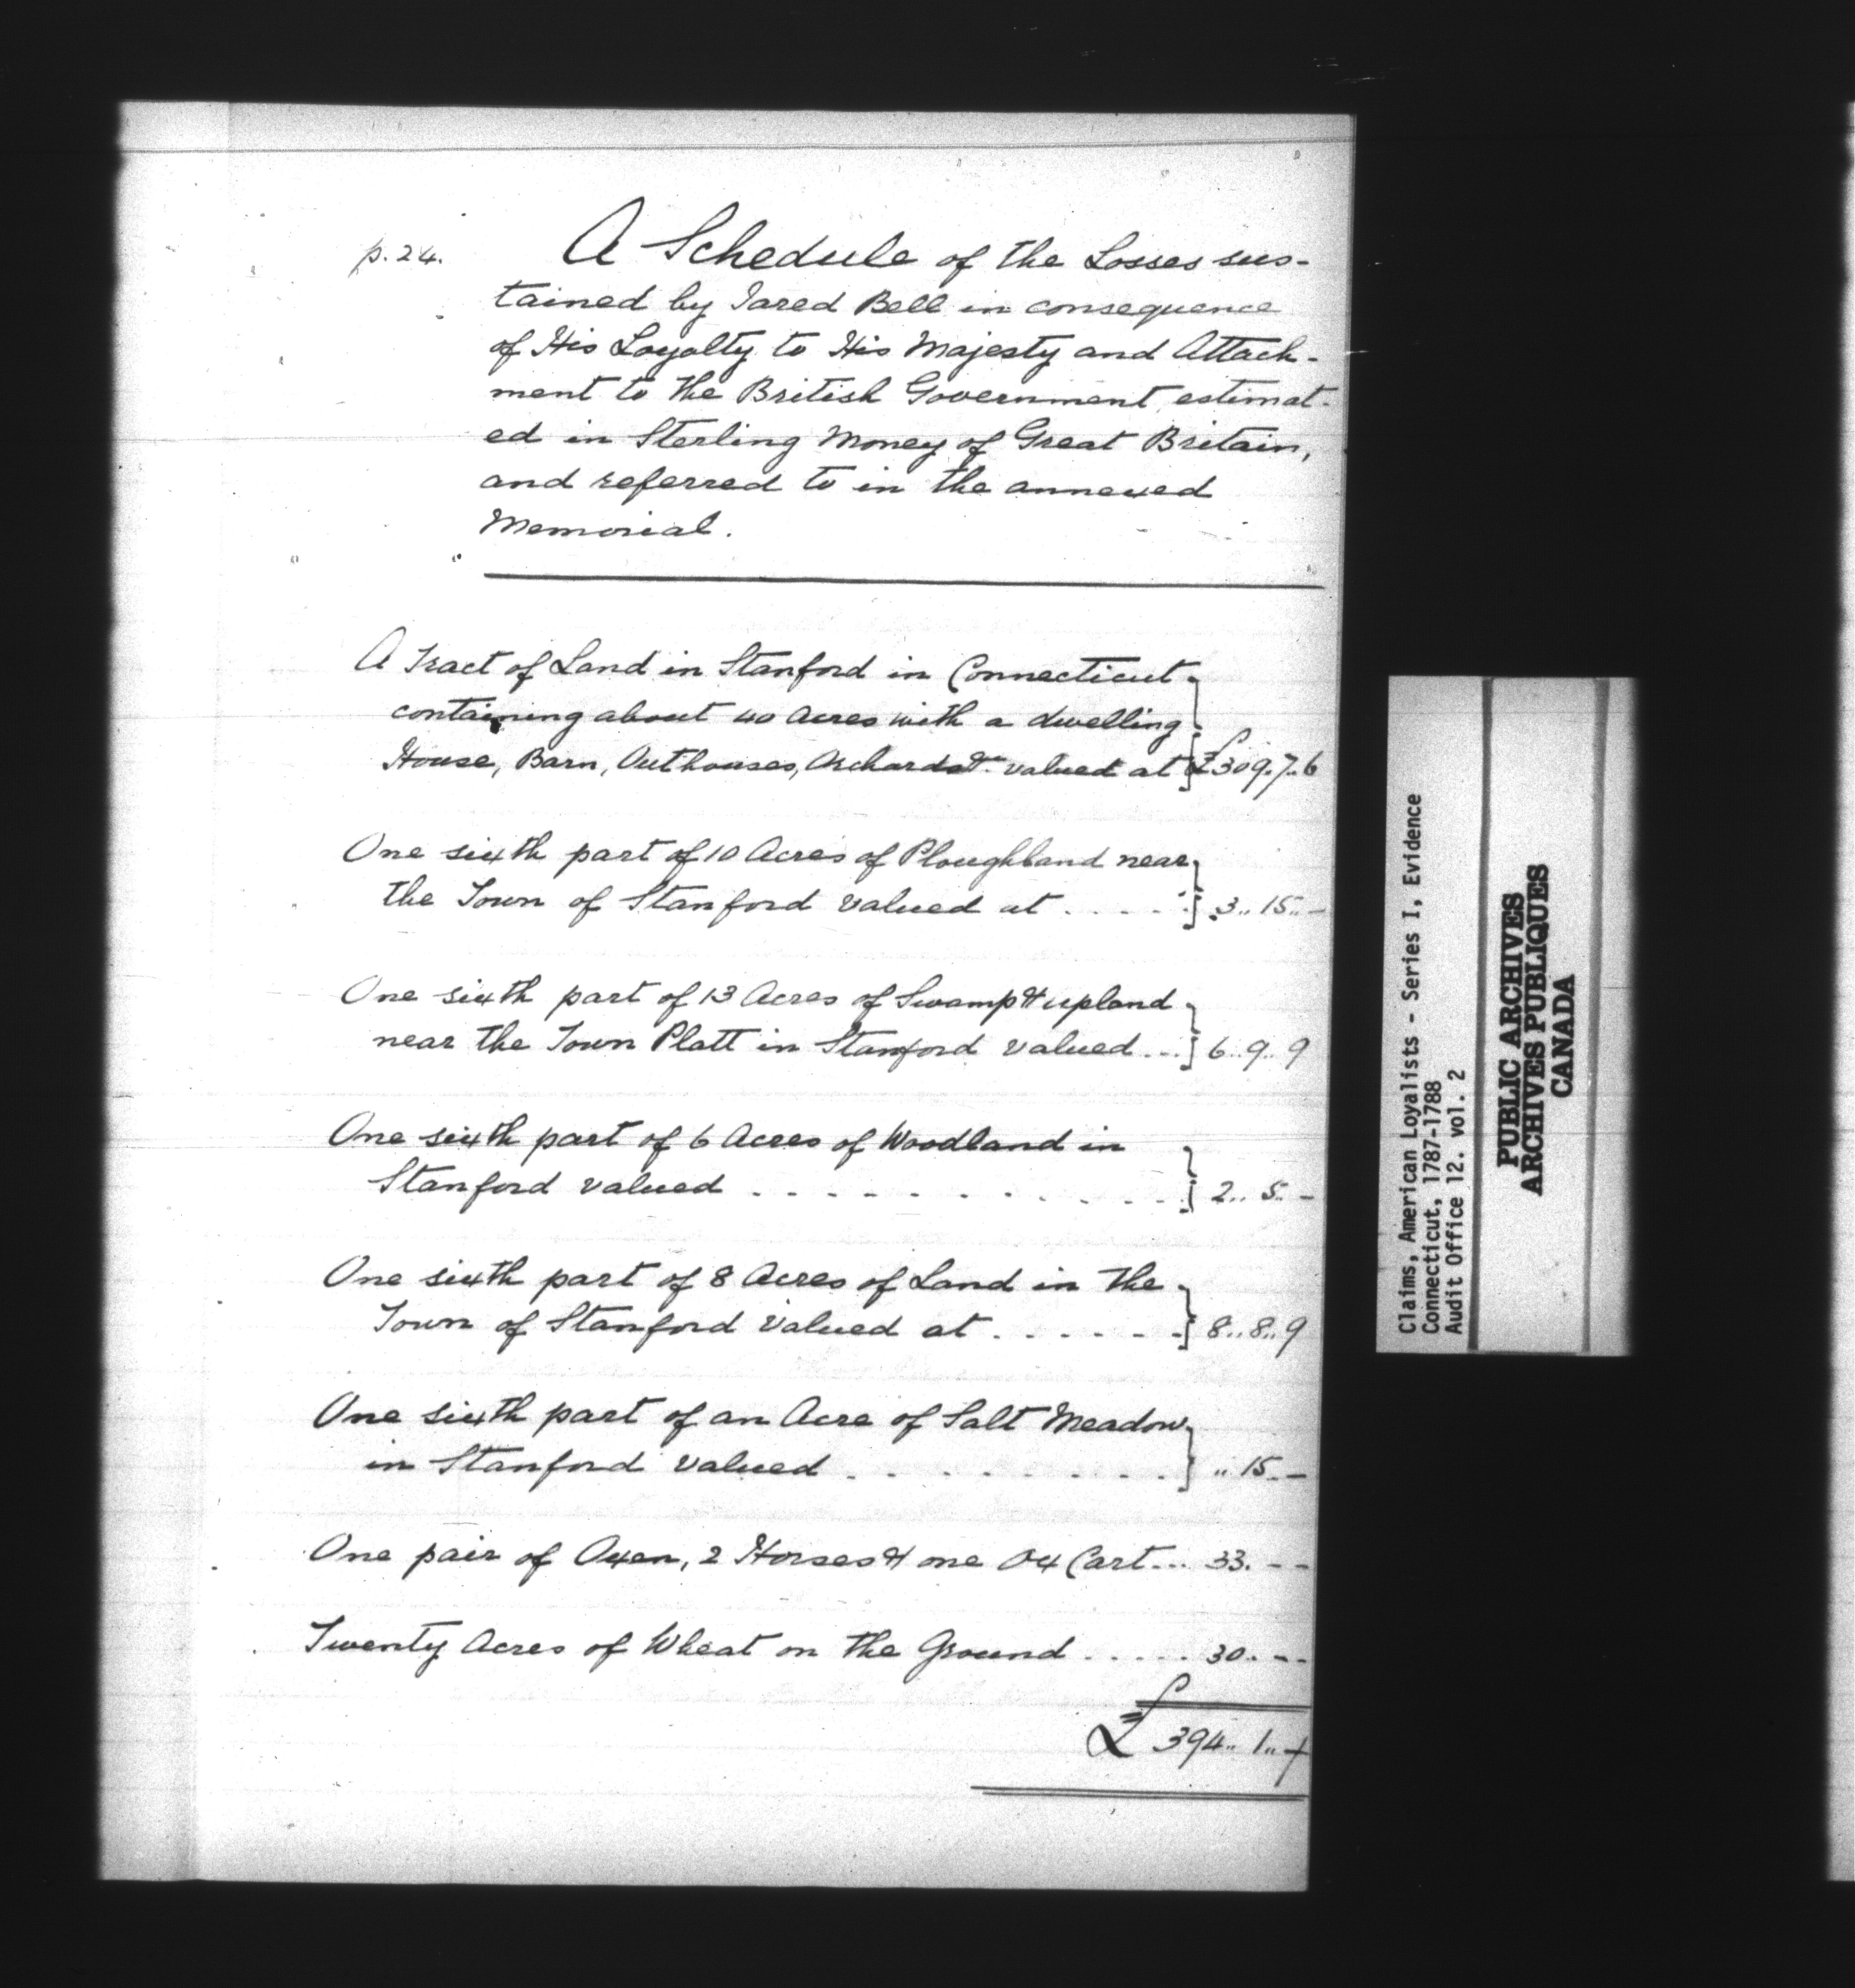 p.24.
A Schedule of the Losses sus-
tained by Jared Bell in consequence
of His Loyalty to His Majesty and Attach-
ment to the British Government, estimat-
ed in Sterling Money of Great Britain,
and referred to in the annexed
Memorial.
A Tract of Land in Stanford in Connecticut
containing about 40 Acres with a dwelling
House, Barn, Outhouses, Orchards &c. valued at £309.7.6
One sixth part of 10 Acres of Ploughland near
the Town of Stanford valued at .... 3..15..-
One sixth part of 13 Acres of Swamp & upland
near the Town Platt in Stanford valued... 6..9..9
One sixth part of 6 Acres of Woodland in
Stanford valued ............ 2..5..-
One sixth part of 8 Acres of Land in the
Town of Stanford valued at ...... 8..8..9
One sixth part of an Acre of Salt Meadow
in Stanford valued ........ " 15..-
One pair of Oxen, 2 Horses & one Ox Cart... 33.--
Twenty Acres of Wheat on the Ground ..... 30.--
£ 394..1..-
Claims, American Loyalists - Series I, Evidence
Connecticut, 1787-1788
Audit Office 12. vol. 2
PUBLIC ARCHIVES
ARCHIVES PUBLIQUES
CANADA